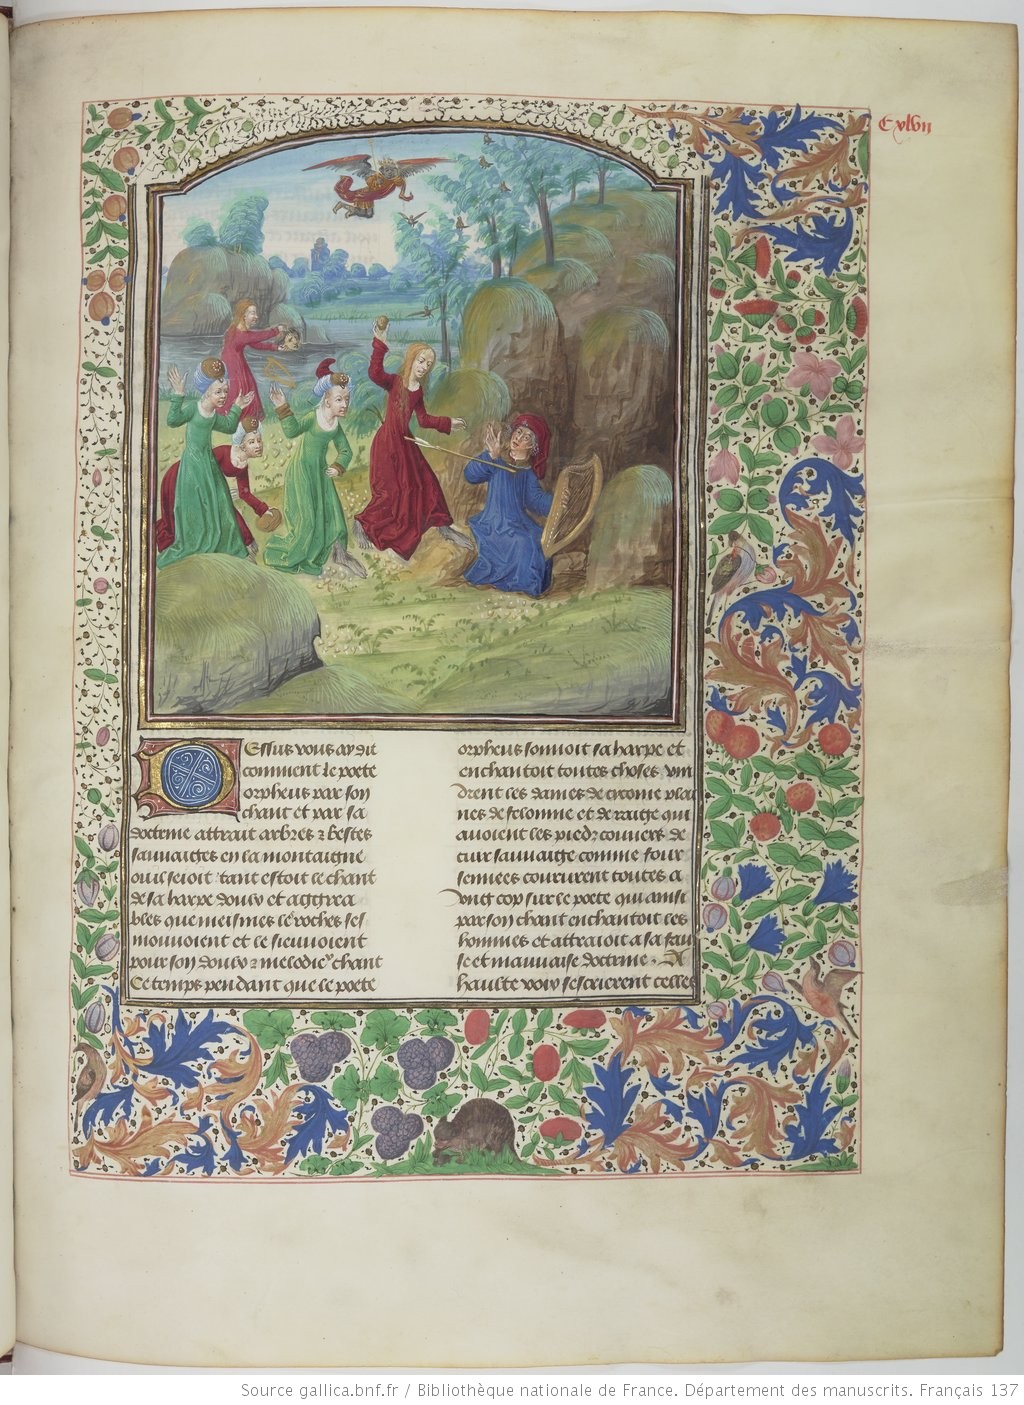 C xlvii
Dessus vous ay dit
comment le poete
orpheus par son
chant et par sa
doctrine attrait arbres & bestes
sauvaiges en la montaigne
ou il seioit tant estoit le chant
de sa harpe doulx et aggrea
bles que meismes les roches se
mouvoient et le sieuvoient
pour son doulx & melodieux chant
Ce temps pendant que le poete
orpheus sonnoit sa harpe et
enchantoit toutes choses vin
drent les dames de cyconie plai
nes de felonnie et de raige qui
avoient les piedz couvers de
cuir sauvaige comme four
sennees coururent toutes a
ung cop sur le poete qui ainsi
par son chant enchantoit les
hommes et attraioit a sa faul
se et mauvaise doctrine. A
haulte voix s'escrierent celles
Source gallica.bnf.fr / Bibliothèque nationale de France. Département des manuscrits. Français 137